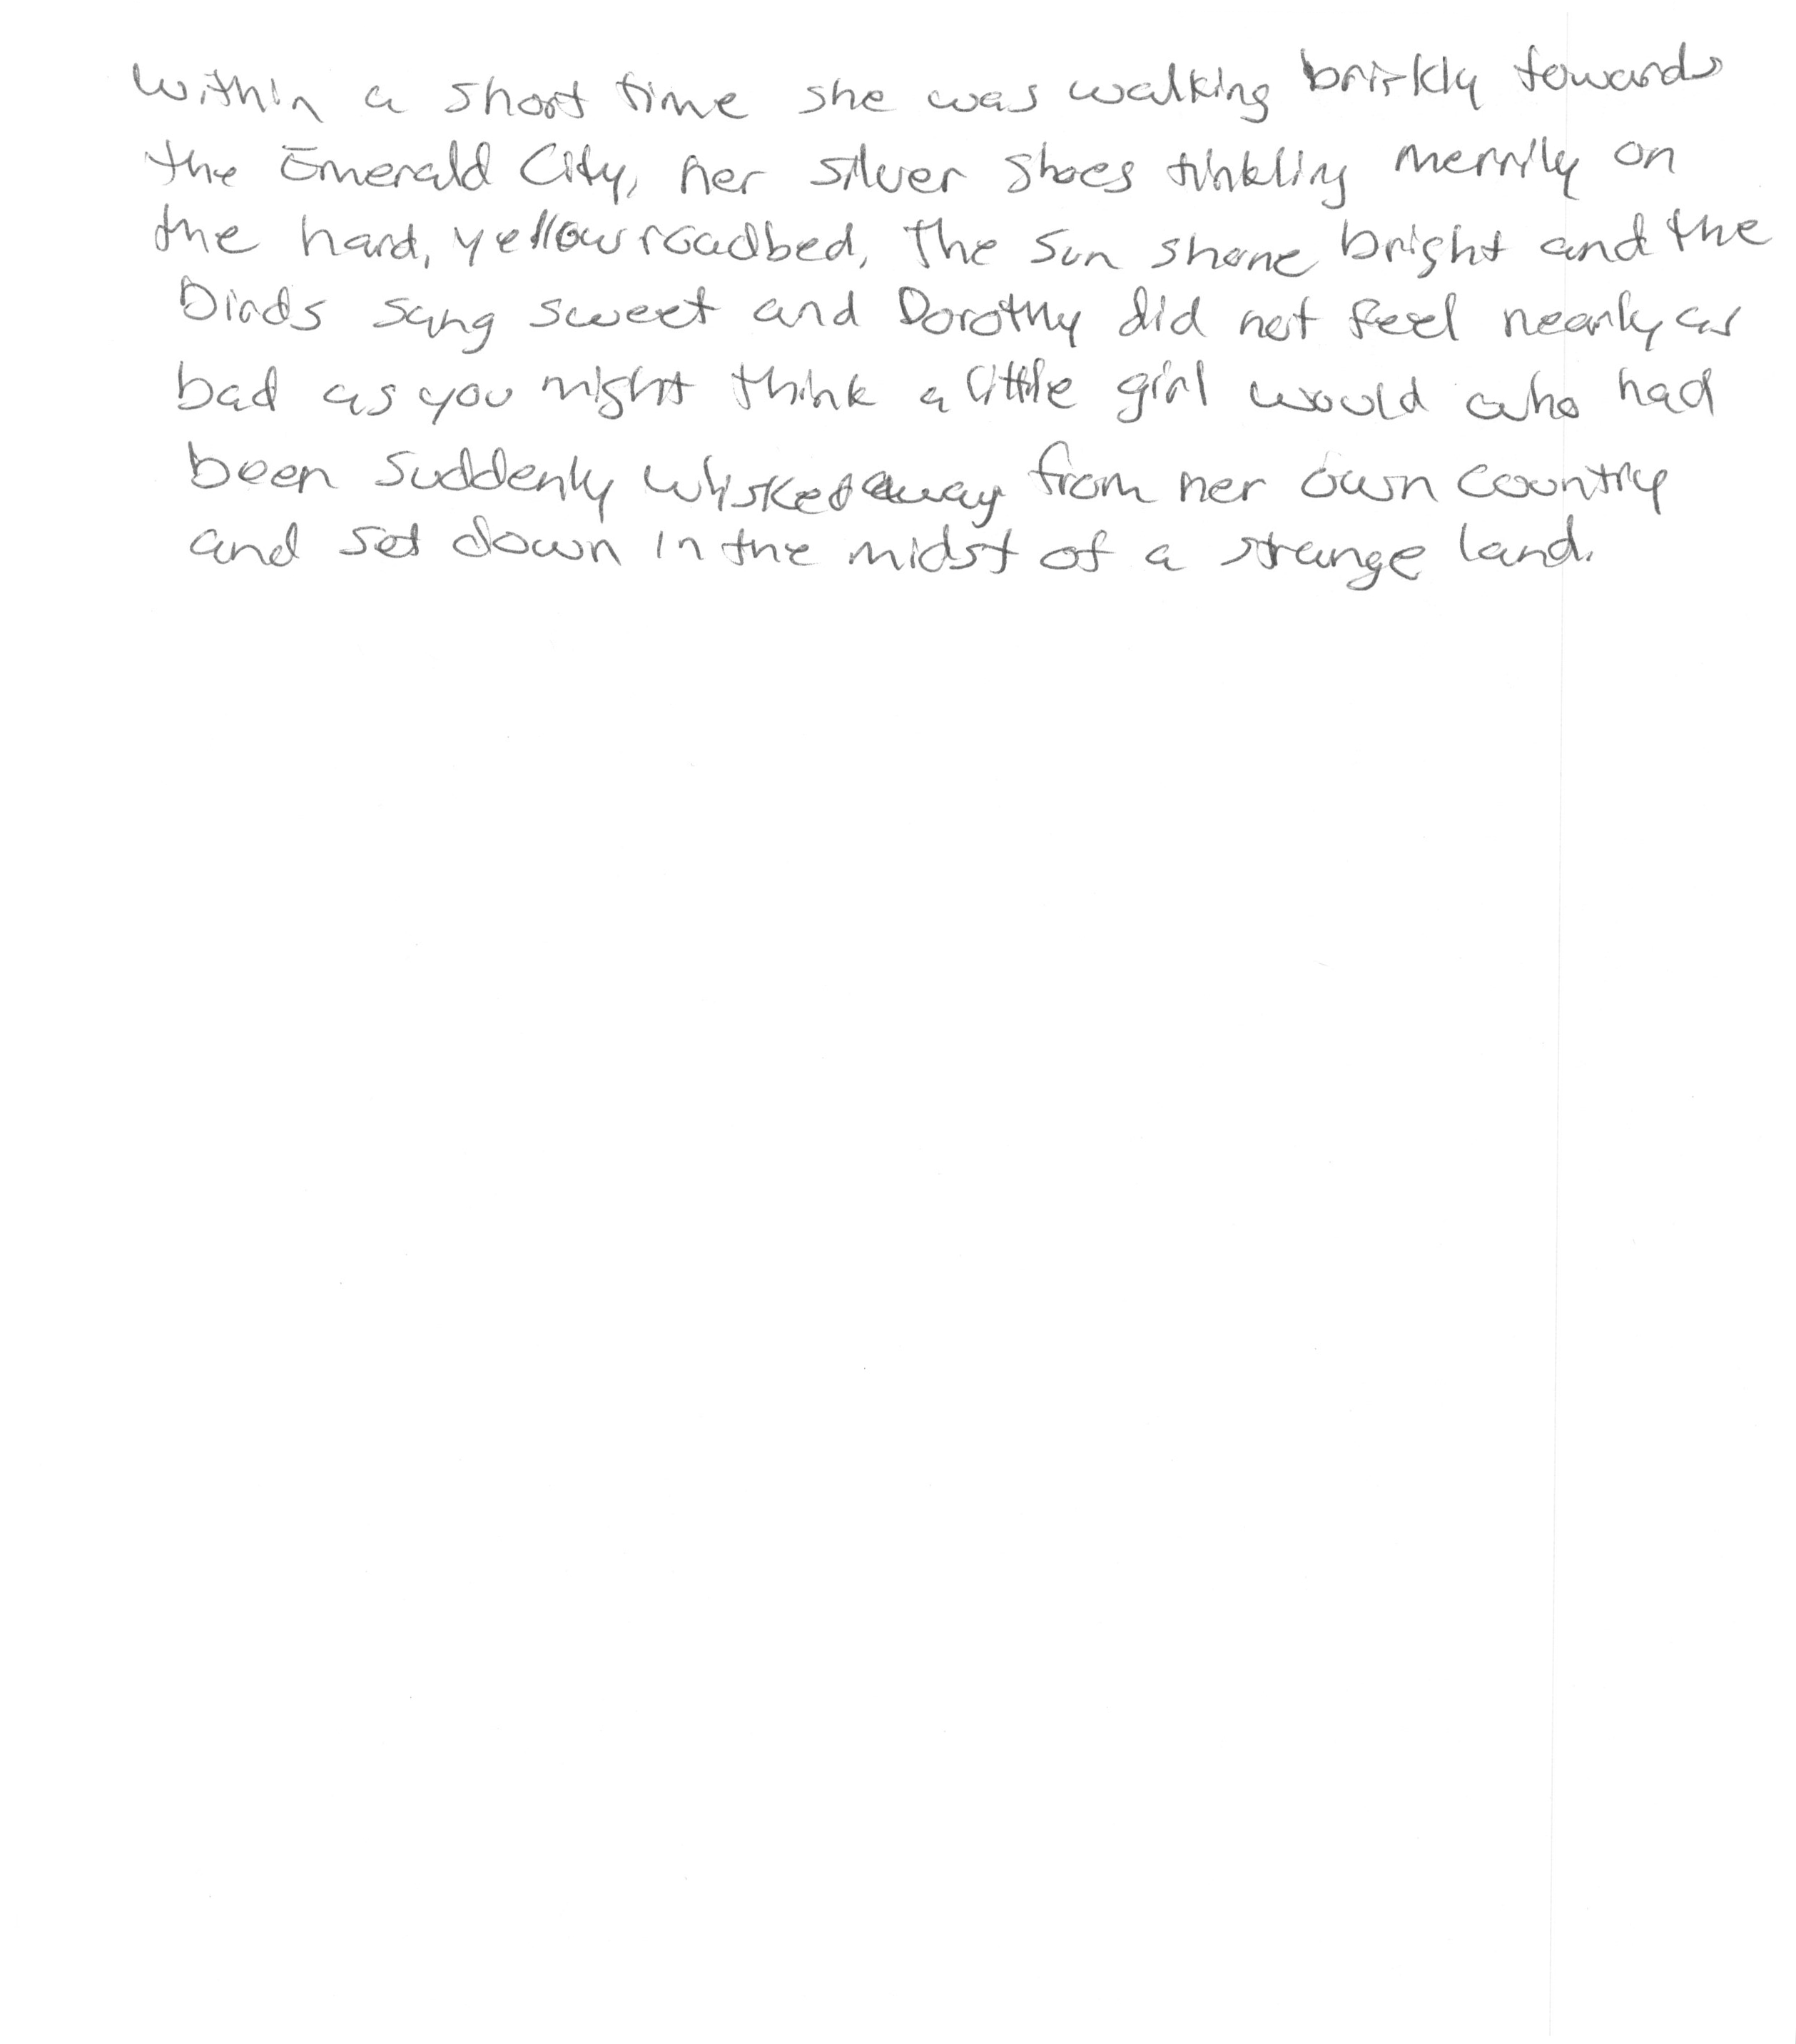 Within a short time she was walking briskly towards
the Emerald City, her silver shoes tinkling merrily on
the hard, yellow roadbed. The sun shone bright and the
birds sang sweet and Dorothy did not feel nearly as
bad as you might think a little girl would who had
been suddenly whisked away from her own country
and set down in the midst of a strange land.